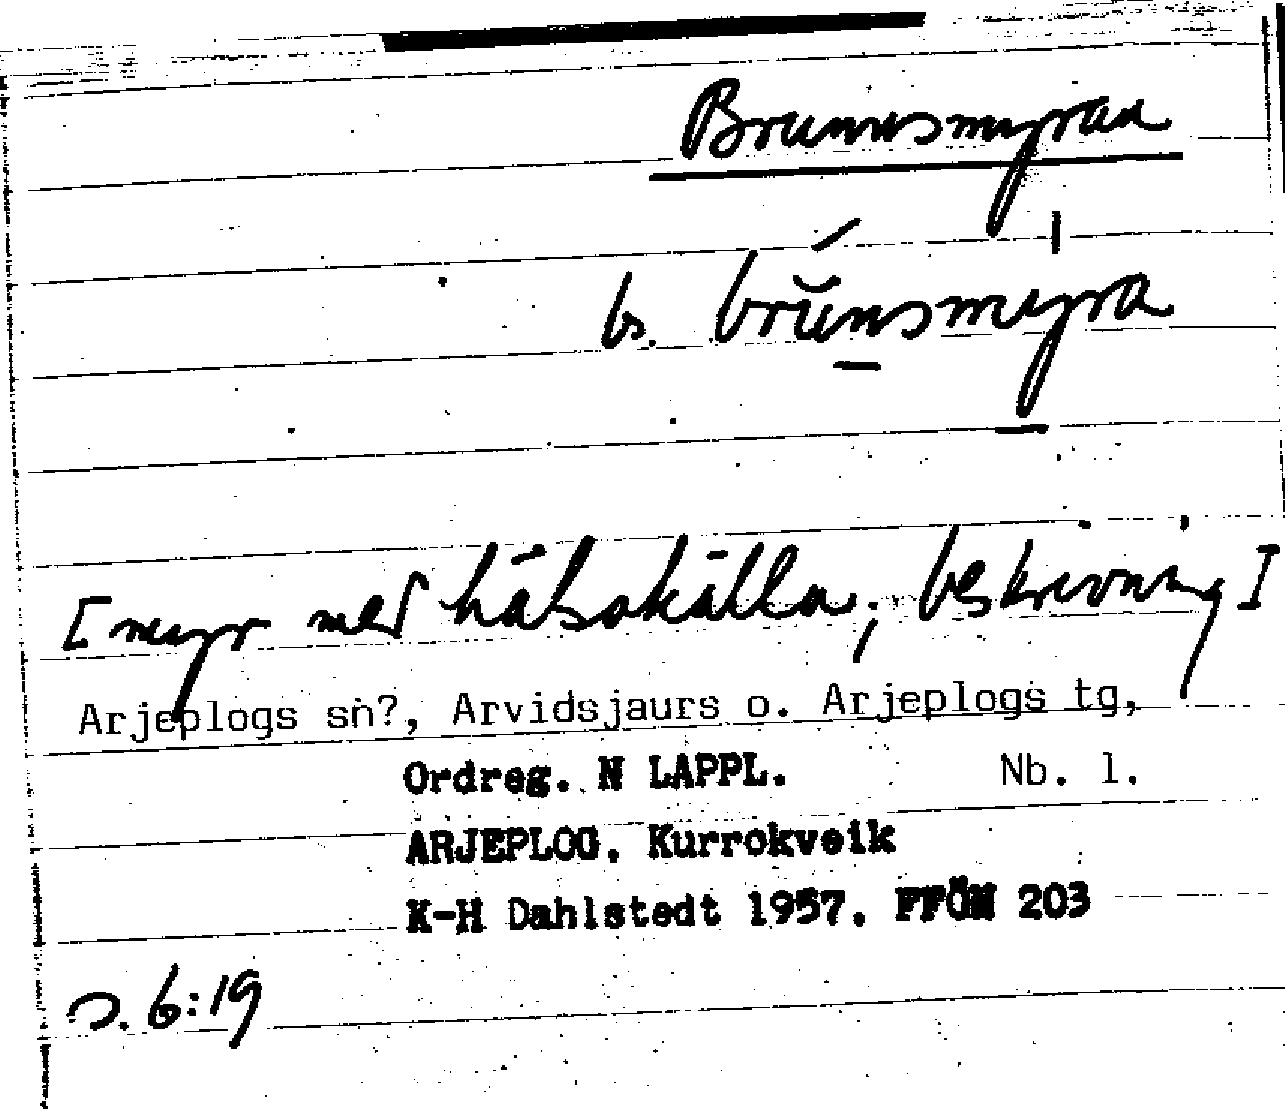 Brunnsmyran
bs. brŭnsmyra
[myr med hälsokälla; beskrivning]
Arjeplogs sn?, Arvidsjaurs o. Arjeplogs tg,
Ordreg. N LAPPL. Nb. l.
ARJEPLOG. Kurrokveik
K-H Dahlstedt 1957. FFÖN 203
s. 6:19